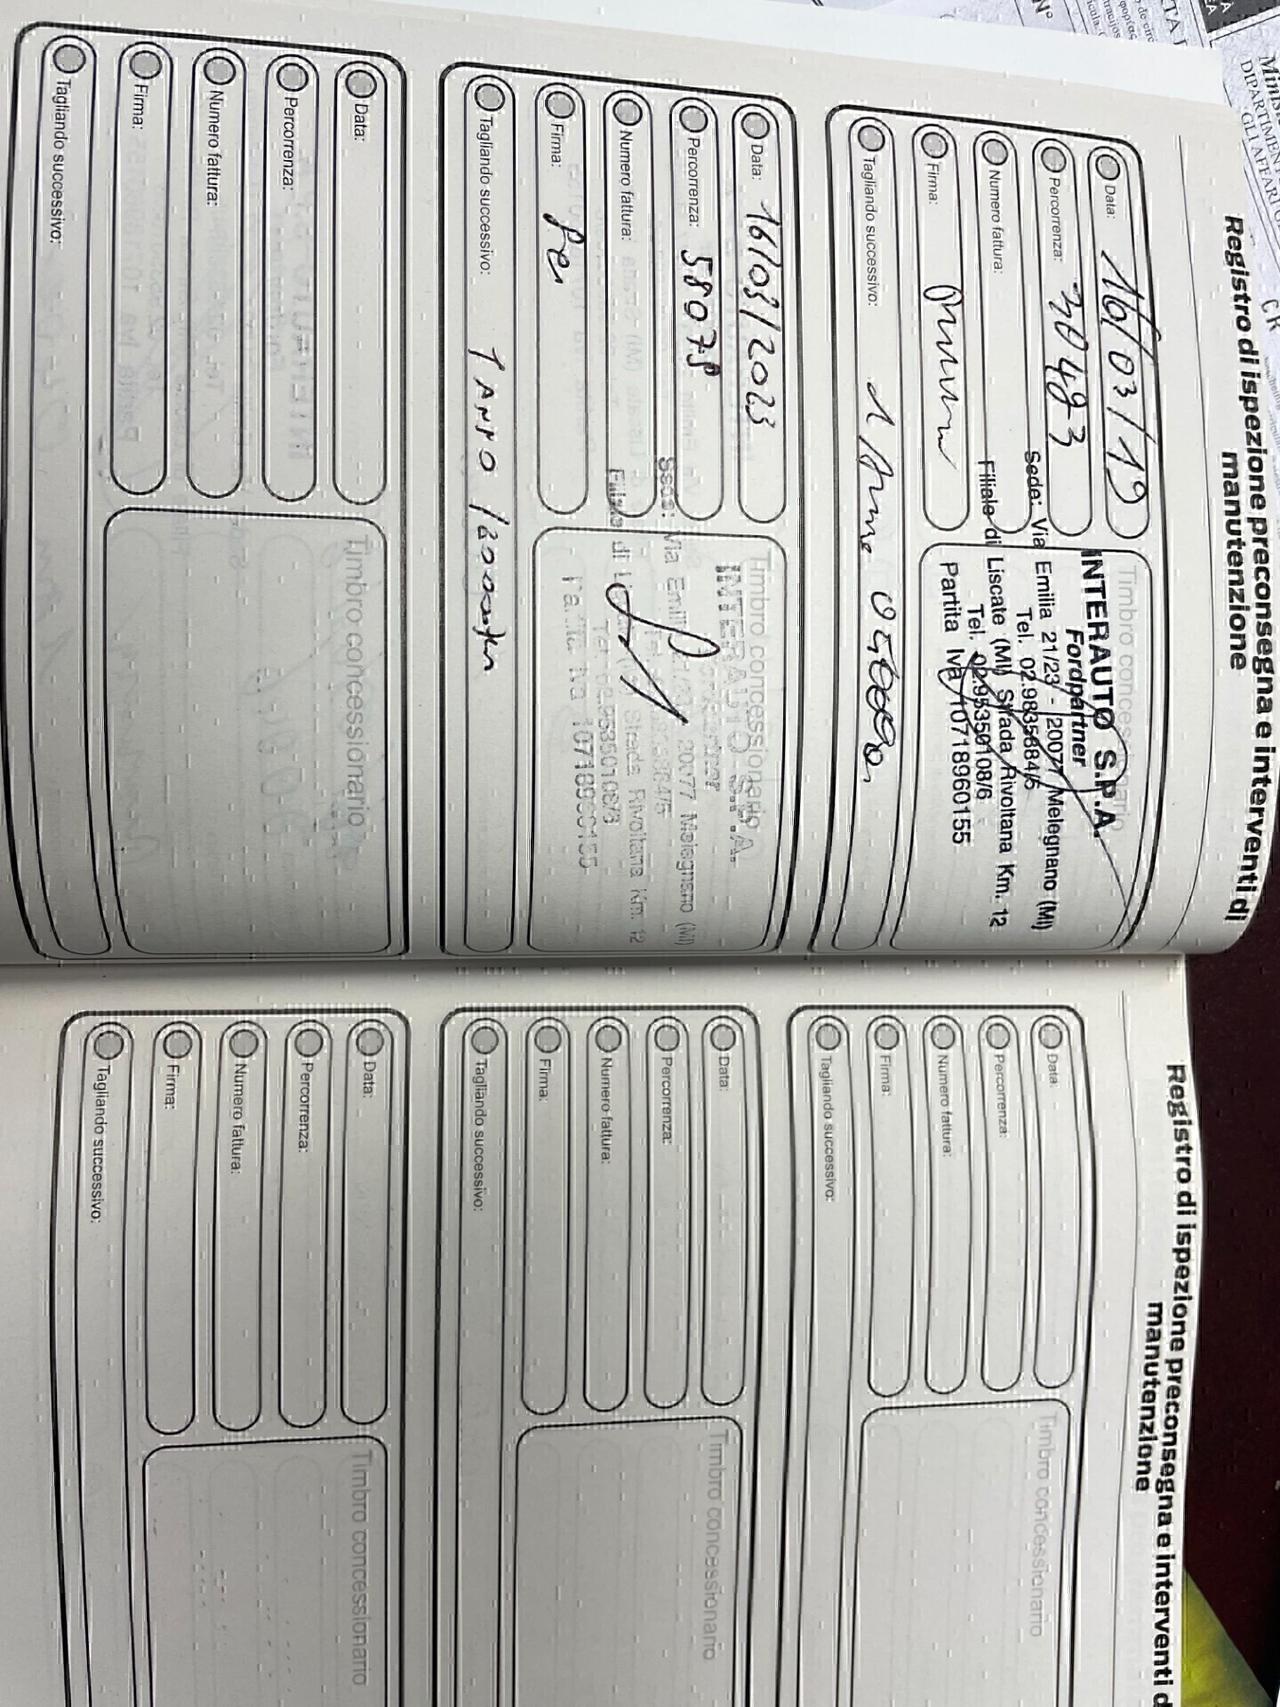 Registro di ispezione preconsegna e interventi di
manutenzione
Data: 16/03/19
Percorrenza: 30493
Numero fattura:
Firma:
Tagliando successivo: 1
Timbro concessionario
INTERAUTO S.P.A.
Fordpartner
Sede: Via Emilia 21/23 - 20077 Melegnano (MI)
Tel. 02.9835684/5
Filiale di Liscate (MI) Strada Rivoltana Km. 12
Tel. 02.95350108/6
Partita Iva 10718960155
Data: 16/03/2023
Percorrenza: 58075
Numero fattura:
Firma:
Tagliando successivo: 1 ANNO
Timbro concessionario
INTERAUTO S.P.A.
Fordpartner
Sede: Via Emilia 21/23 - 20077 Melegnano (MI)
Filiale di Liscate (MI) Strada Rivoltana Km. 12
Partita Iva 10718960155
Data:
Percorrenza:
Numero fattura:
Firma:
Tagliando successivo:
Timbro concessionario
Registro di ispezione preconsegna e interventi d
manutenzione
Data:
Percorrenza:
Numero fattura:
Firma:
Tagliando successivo:
Timbro concessionario
Data:
Percorrenza:
Numero fattura:
Firma:
Tagliando successivo:
Timbro concessionario
Data:
Percorrenza:
Numero fattura:
Firma:
Tagliando successivo:
Timbro concessionario
DIPARTIMEN
GLI AFFARI